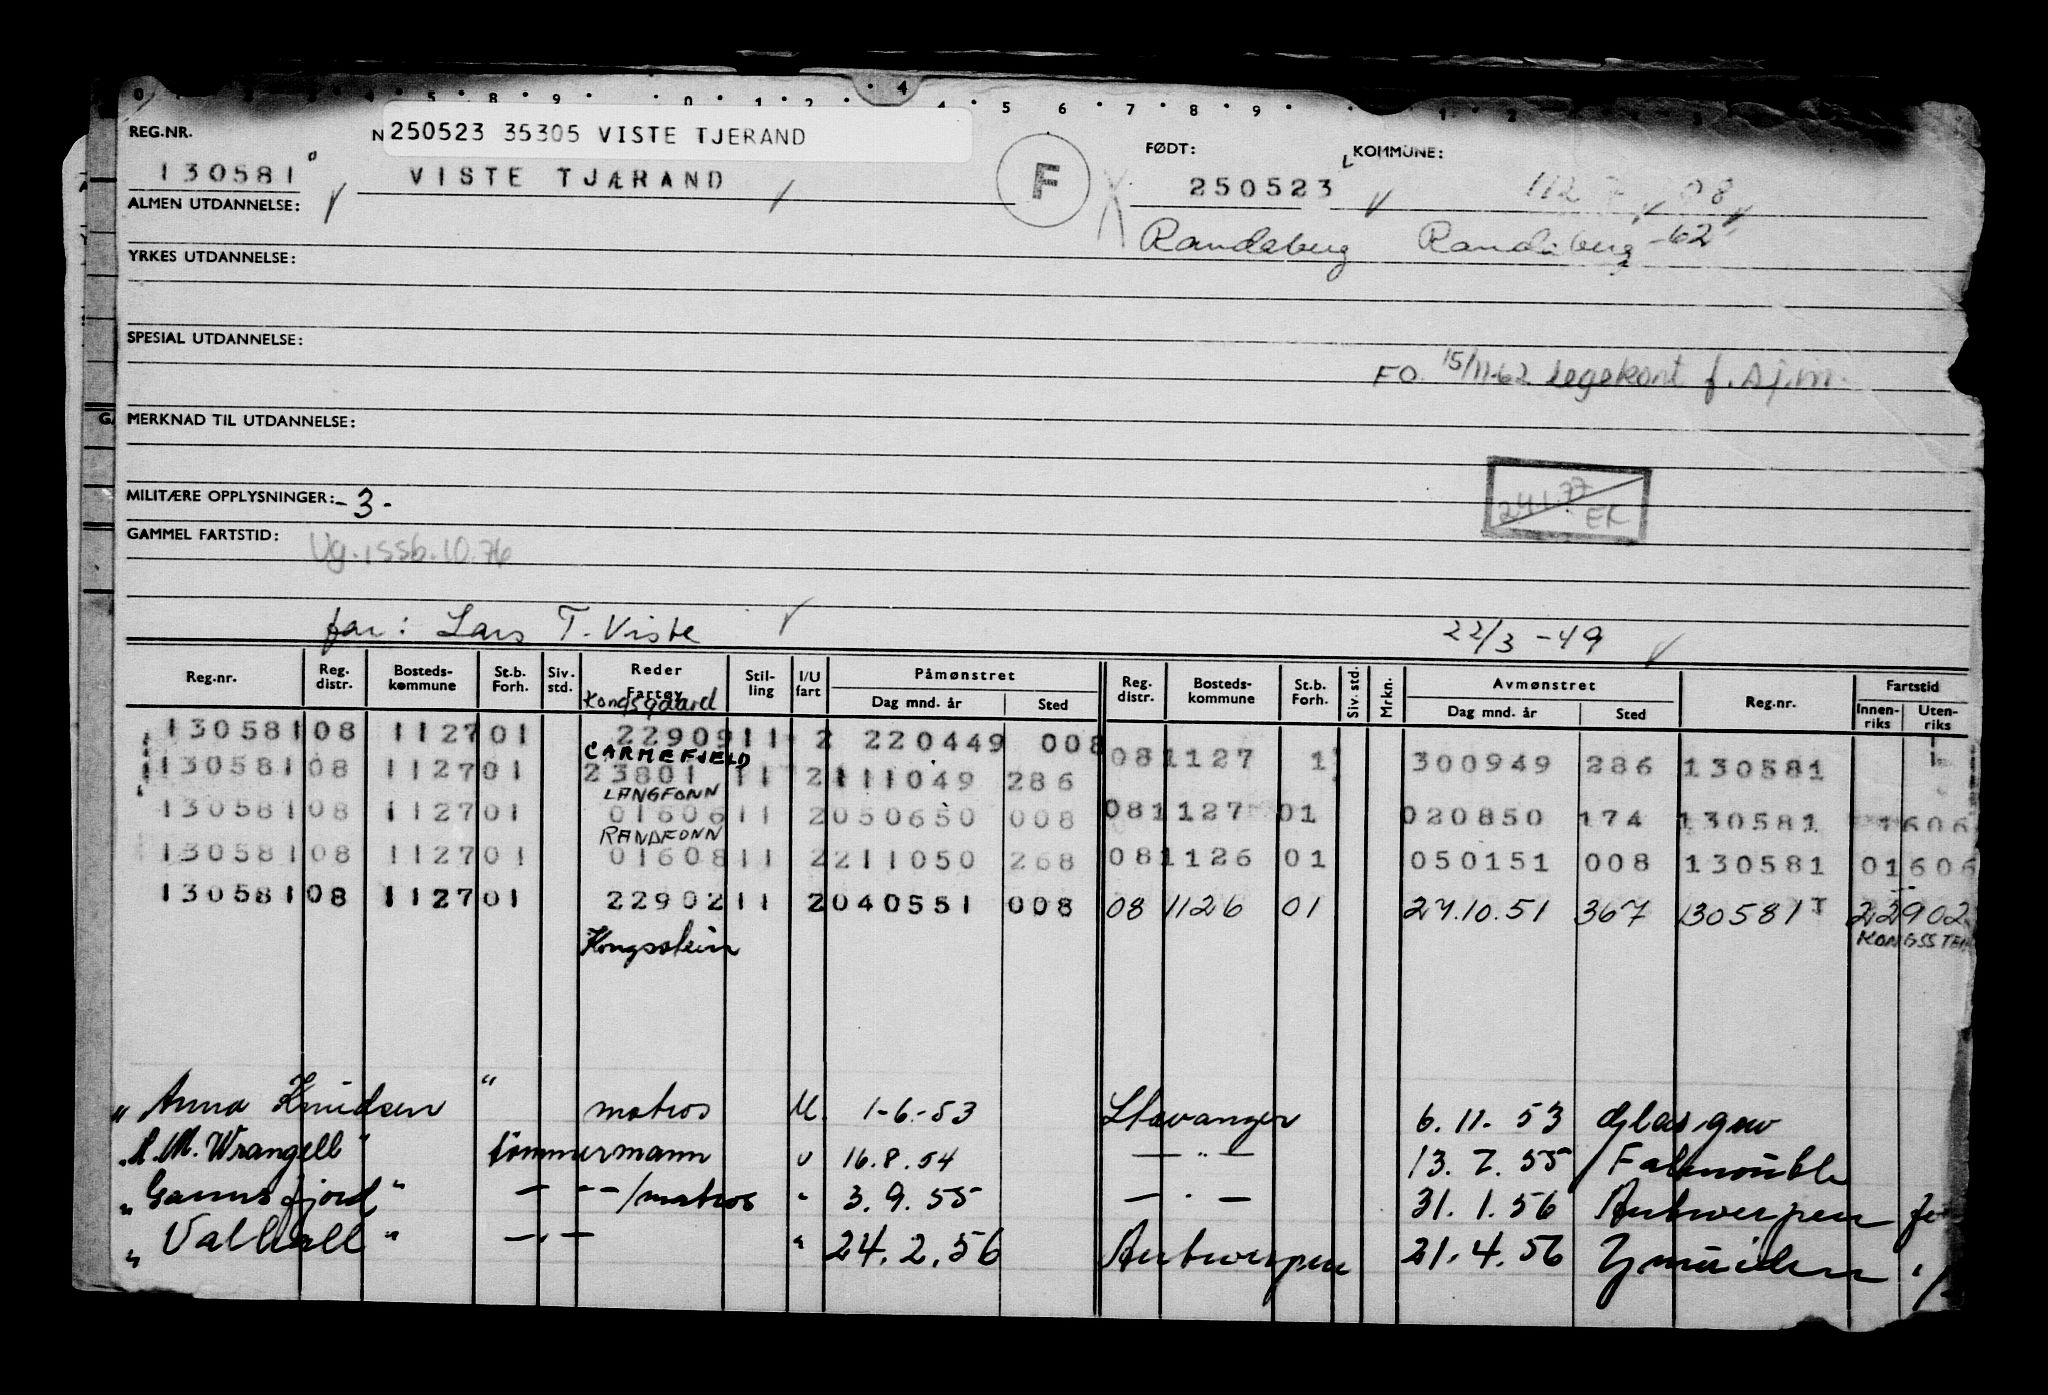 REG.NR. N 250523 35305 VISTE TJERAND FØDT: KOMMUNE:
130581 VISTE TJÆRAND F 250523 1127 08
ALMEN UTDANNELSE:
Randaberg Randaberg -62
YRKES UTDANNELSE:
SPESIAL UTDANNELSE:
FO. 15/11-62 legekont f. sjm.
MERKNAD TIL UTDANNELSE:
MILITÆRE OPPLYSNINGER: -3-
24.1.77 EK
GAMMEL FARTSTID: Ug.issb.10.76
far: Lars T. Viste 22/3 -49
Reg.nr. Reg. distr. Bosteds-kommune St.b. Forh. Siv. std. Reder Fartøy Stil-ling I/U fart Påmønstret Dag mnd. år Sted Reg. distr. Bosteds-kommune St.b. Forh. Siv. std. Mrkn. Avmønstret Dag mnd. år Sted Reg.nr. Fartstid Innen-riks Uten-riks
Kongsgaard
130581 08 1127 01 22909 11 2 220449 008 08 1127 1 300949 286 130581
CARMEFJELD
130581 08 1127 01 23801 11 2 111049 286
LANGFONN
130581 08 1127 01 01606 11 2 050650 008 08 1127 01 020850 174 130581 1606
RANDFONN
130581 08 1127 01 01608 11 2 211050 268 08 1126 01 050151 008 130581 01606
130581 08 1127 01 22902 11 2 040551 008 08 1126 01 27.10.51 367 130581 22902
Kongsstein KONGSSTEI
" Anna Knudsen " matros U. 1-6-53 Stavanger 6.11.53 Glasgow
" A. M. Wrangell " tømmermann u 16.8.54 — " — 13.7.55 Falmouth
" Gannsfjord " — -- /matros " 3.9.55 — " — 31.1.56 Antwerpen
" Valhall " — " — " 24.2.56 Antwerpen 21.4.56 Ymuiden "